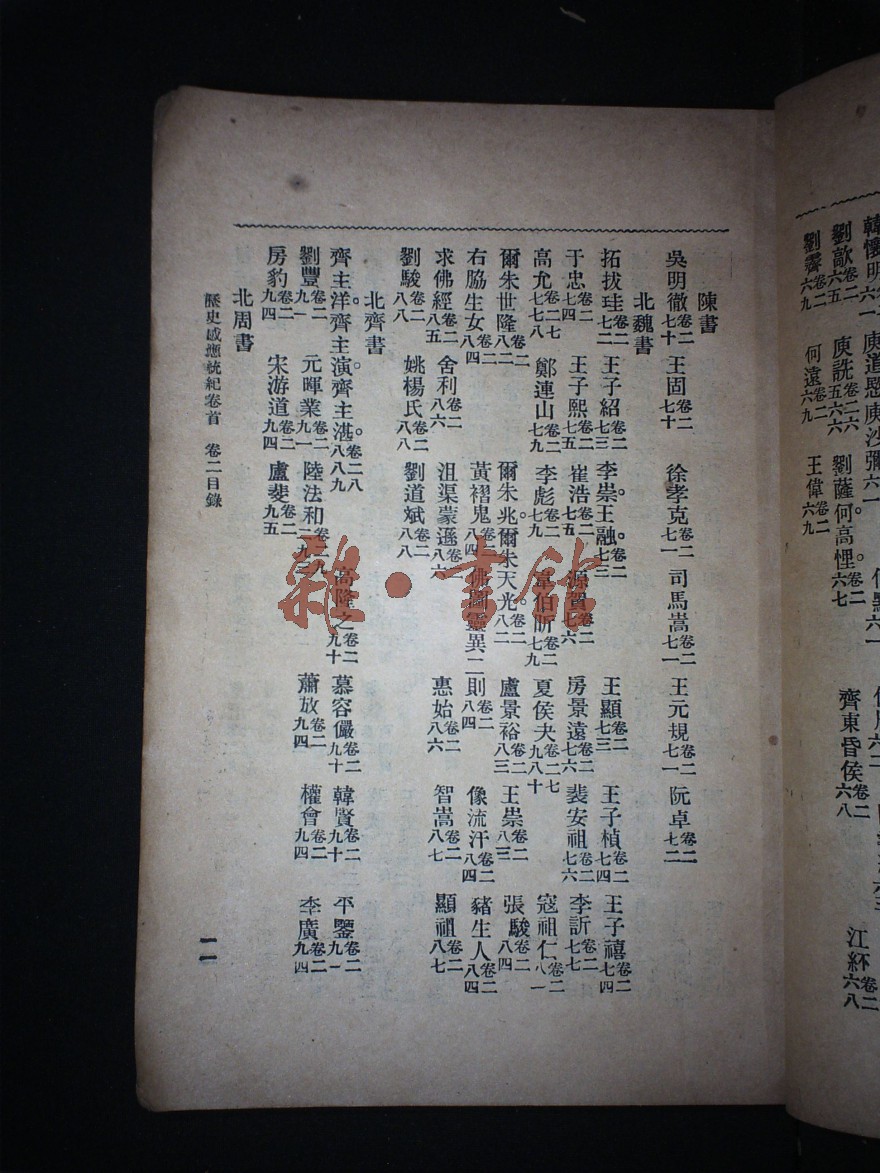 劉歊卷二六五
庾詵卷二六五六六
齊東昏侯卷二六八
江紑卷二六八
劉霽卷二六九
何遠卷二六九
王偉卷二六九
陳書
吳明徹卷二七十 王固卷二七十 徐孝克卷二七一 司馬暠卷二七一 王元規卷二七一 阮卓卷二七二
北魏書
拓拔珪卷二七二 王子紹卷二七三 李崇。王融。卷二七三 王顯卷二七三 王子楨卷二七四 王子禧卷二七四
于忠卷二七四 王子熙卷二七五 崔浩卷二七五 源賀卷二七六 房景遠卷二七六 裴安祖卷二七六 李訢卷二七七
高允卷二七七七八 鄭連山卷二七九 李彪卷二七九 韋伯昕卷二七九 夏侯夬卷二七九八十 寇祖仁卷二八一
爾朱世隆卷二八二 爾朱兆。爾朱天光。卷二八二 盧景裕卷二八三 王崇卷二八三 張駿卷二八四
右脇生女卷二八四 黃褶鬼卷二八四 佛圖靈異二則卷二八四 像流汗卷二八四 豬生人卷二八四
求佛經卷二八五 舍利卷二八六 沮渠蒙遜卷二八六 惠始卷二八六 智嵩卷二八七 顯祖卷二八七
劉駿卷二八八 姚楊氏卷二八八 劉道斌卷二八八
北齊書
齊主洋。齊主演。齊主湛。卷二八八八九 高隆之卷二九十 慕容儼卷二九十 韓賢卷二九十 平鑒卷二九一
劉豐卷二九一 元暉業卷二九一 陸法和卷二九二九三 蕭放卷二九四 權會卷二九四 李廣卷二九四
房豹卷二九四 宋游道卷二九四 盧斐卷二九五
北周書
歷史感應統紀卷首 卷二目錄 一一
雜·書館